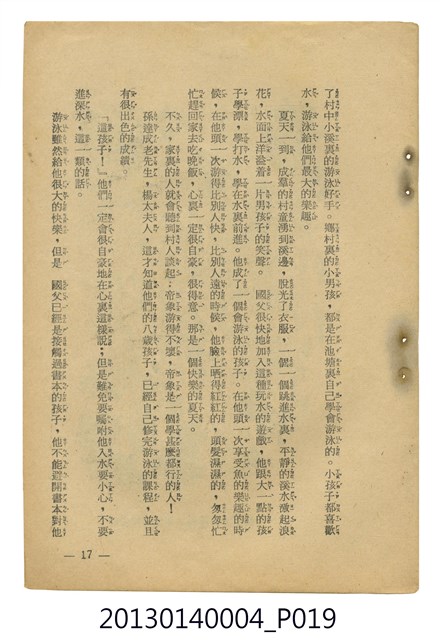 了村中小溪裏的游泳好手。鄉村裏的小男孩，都是在池塘裏自己學會游泳的。小孩子都喜歡
水，游泳給他們最大的樂趣。
夏天一到，成羣的村童湧到溪邊，脫光了衣服，一個一個跳進水裏，平靜的溪水激起浪
花，水面上洋溢着一片男孩子的笑聲。　國父很快地加入這種玩水的遊戲，他跟大一點的孩
子學漂，學打水，學在水裏前進。他成了一個會游泳的孩子。在他頭一次享受魚的樂趣的時
候，在他頭一次游得比別人快，比別人遠的時候，他臉上晒得紅紅的，頭髮濕濕的，匆匆忙
忙趕回家去吃晚飯，心裏一定很自豪，很得意。那是一個快樂的夏天。
不久，家裏的人就會聽到村人談起：帝象游得不壞，帝象是一個學甚麼都行的人！
孫達成老先生，楊太夫人，這才知道他們的八歲孩子，已經自己修完游泳的課程，並且
有很出色的成績。
「這孩子！」他們一定會很自豪地在心裏這樣說；但是難免要囑咐他入水要小心，不要
進深水，這一類的話。
游泳雖然給他很大的快樂，但是　國父已經是接觸過書本的孩子，他不能避開書本對他
— 17 —
20130140004_P019